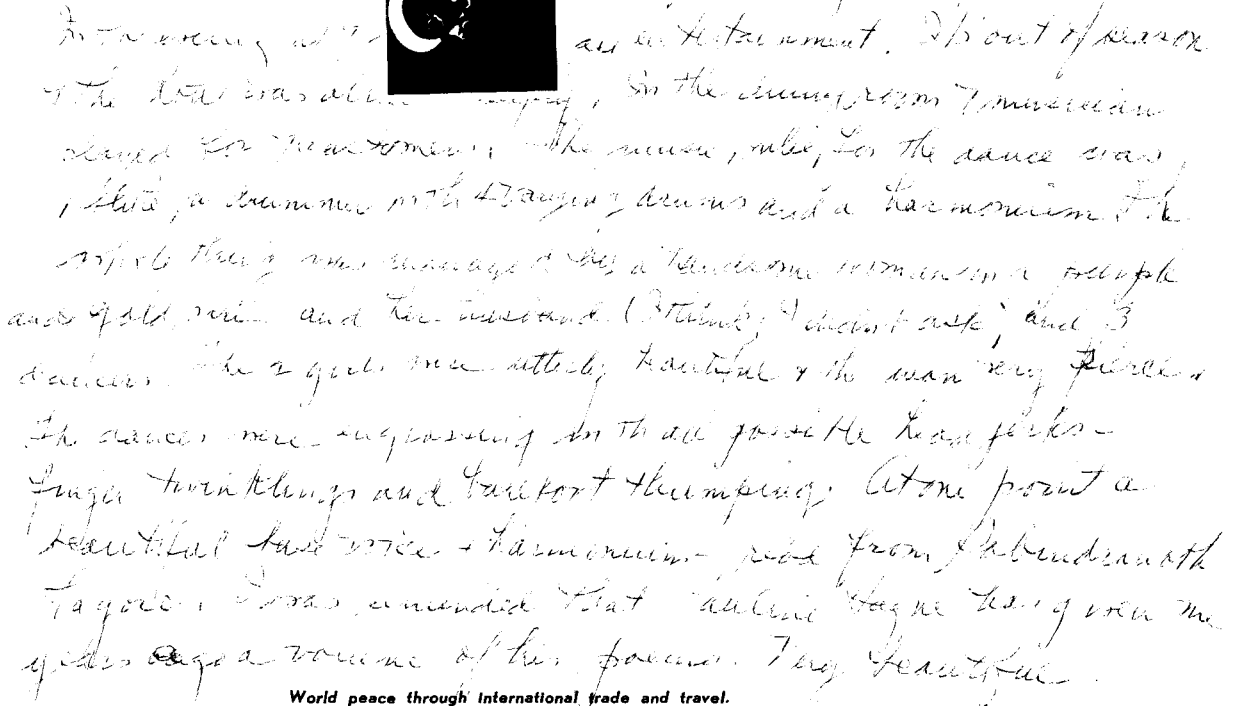 In the evening at 7 an entertainment. It's out of season
& the hotel was almost empty, in the dining room 7 musician
played for
the music, for the dance was,
1 flute, a drummer with 4 varying drums and a harmonium. The
whole thing was managed by a handsome woman in a purple
and gold sari and her husband (I think, I didn't ask) and 3
dancers. The 2 girls were utterly beautiful & the man very fierce.
The dances were engrossing with all possible head jerks –
finger twinklings and barefoot thumping. At one point a
beautiful bass voice & harmonium – from Rabindranath
Tagore. I was reminded that Pauline has given me
years ago a volume of his poems. Very beautiful.
World peace through international trade and travel.